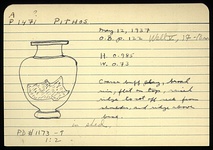 A
P 1471 PITHOS
May 12, 1937
O.B. p. 122 Well V, 17-18 m
H. 0.945
W. 0.73
Coarse buff clay, broad
rim, flat on top, raised
ridge to set off neck from
shoulder, and ridge above
base.
in shed,
PD# 1173-9
1:2